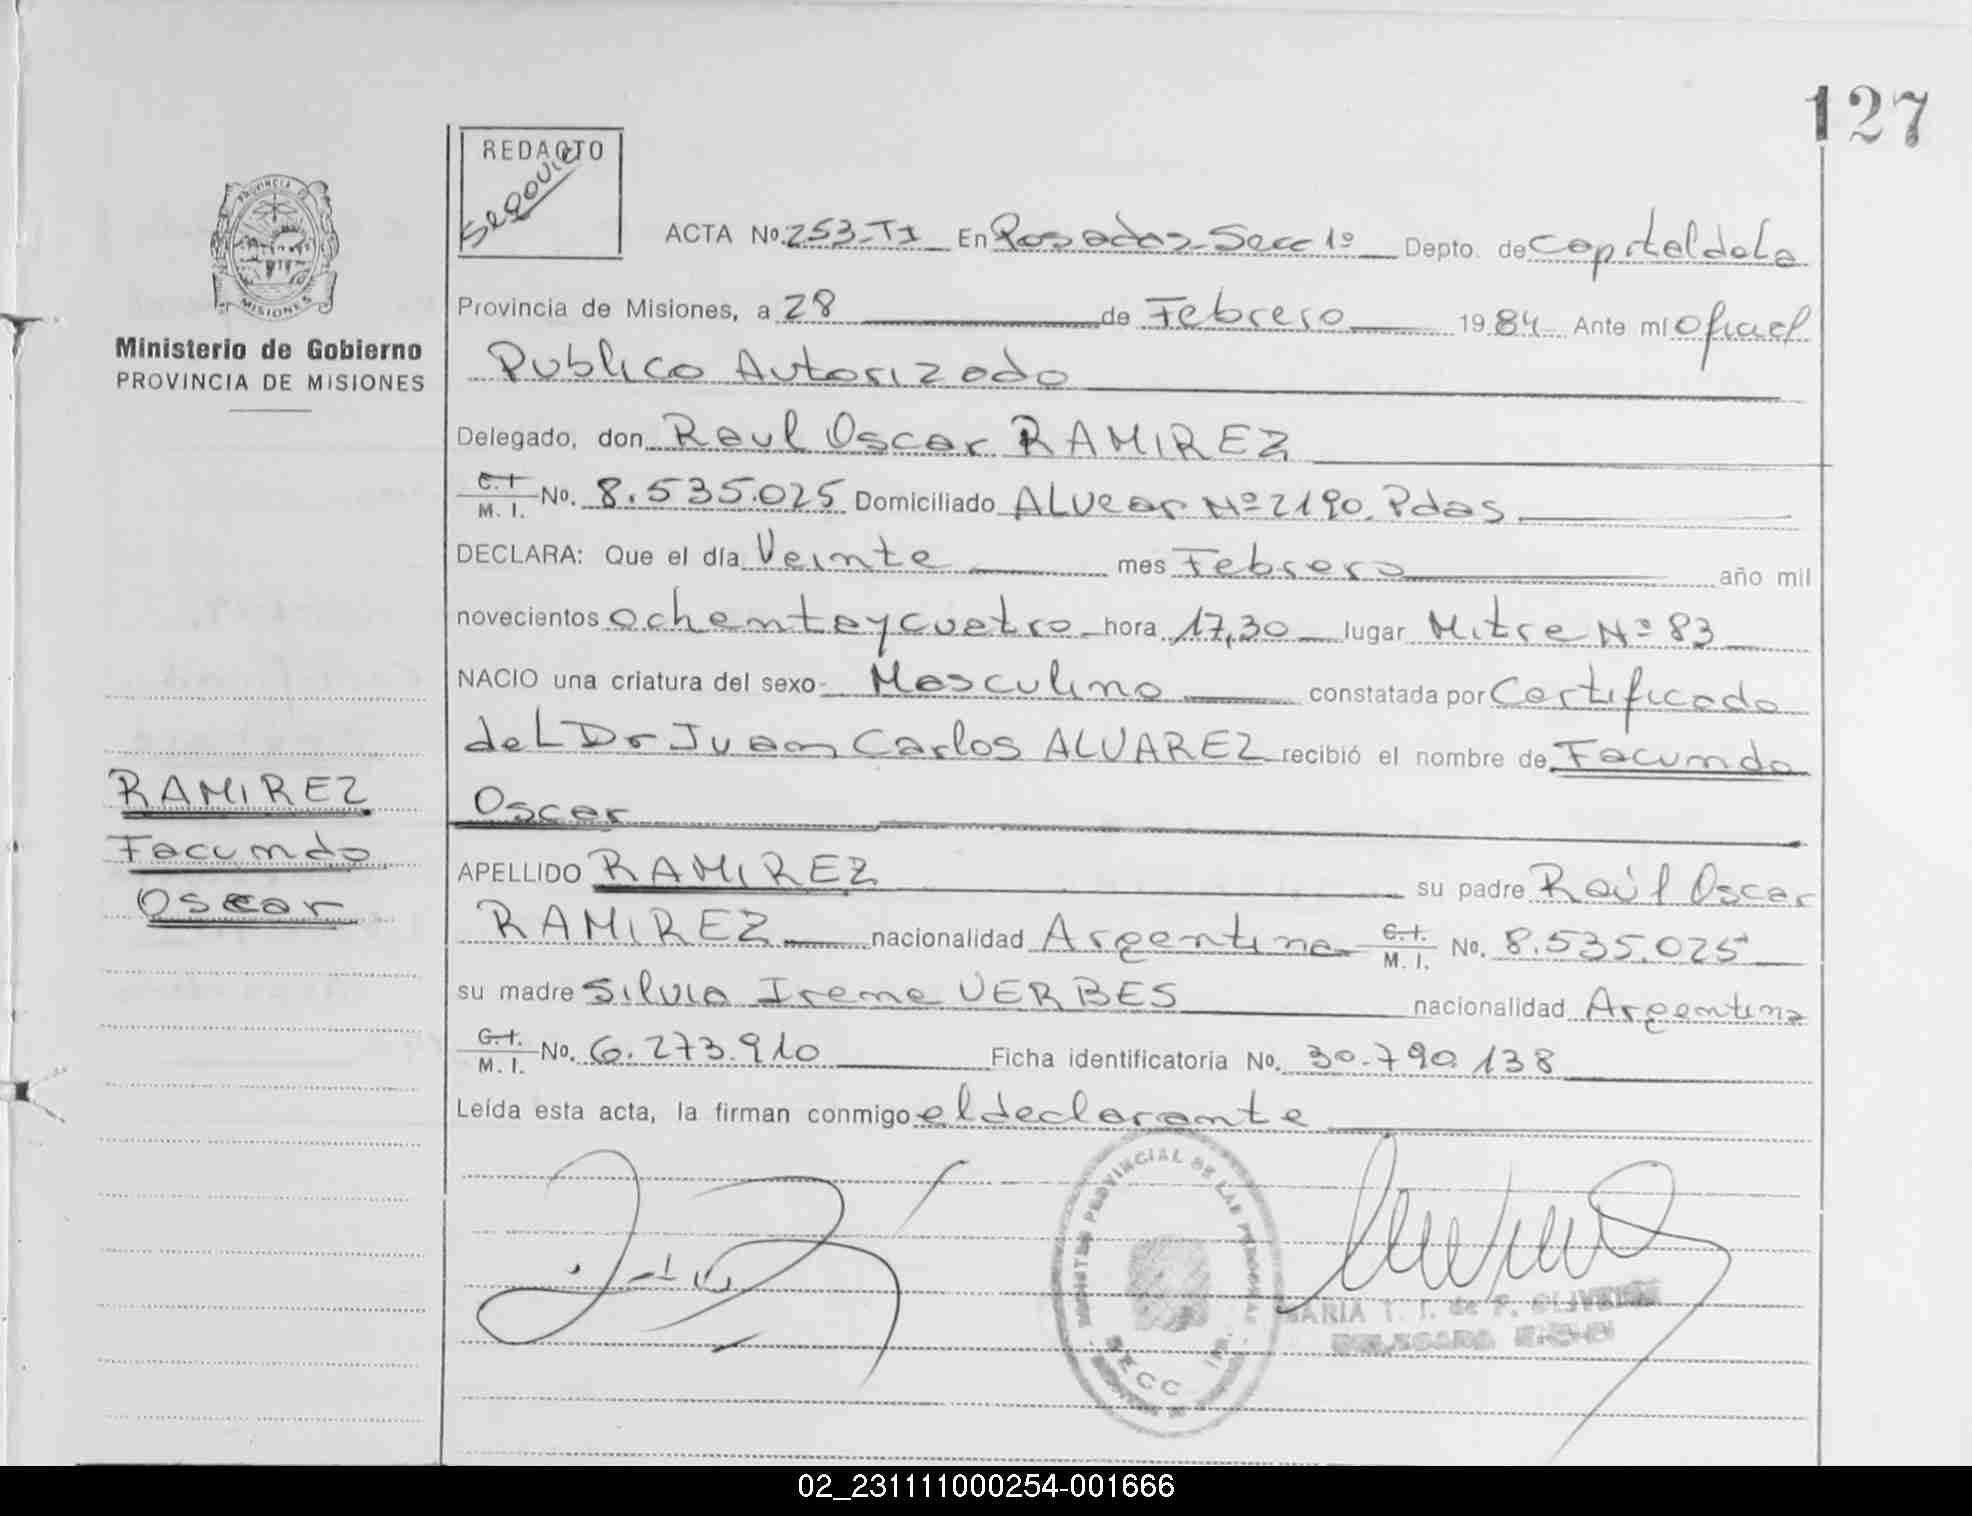 127
REDACTO
Segovia
PROVINCIA DE
MISIONES
Ministerio de Gobierno
PROVINCIA DE MISIONES
ACTA No. 253-TI En Posadas-Secc 1º Depto. de Capital de La
Provincia de Misiones, a 28 de Febrero 1984 Ante mí Oficial
Publico Autorizado
Delegado, don Raul Oscar RAMIREZ
C.I. M. I. No. 8.535.025 Domiciliado ALvear Nº 2190. Pdas
DECLARA: Que el día Veinte mes Febrero año mil
novecientos ochenta y cuatro hora 17,30 lugar Mitre Nº 83
NACIO una criatura del sexo Masculino constatada por Certificado
deL Dr Juan Carlos ALVAREZ recibió el nombre de Facundo
Oscar
RAMIREZ
Facundo
Oscar
APELLIDO RAMIREZ su padre Raúl Oscar
RAMIREZ nacionalidad Argentina C.I. M. I. No. 8.535.025
su madre Silvia Irene VERBES nacionalidad Argentina
C.I. M. I. No. 6.273.910 Ficha identificatoria No. 30.790.138
Leída esta acta, la firman conmigo el declarante
PROVINCIAL DE LAS PERSONAS
MARIA T. I. de F. OLIVEIRA
DELEGADA
02_231111000254-001666